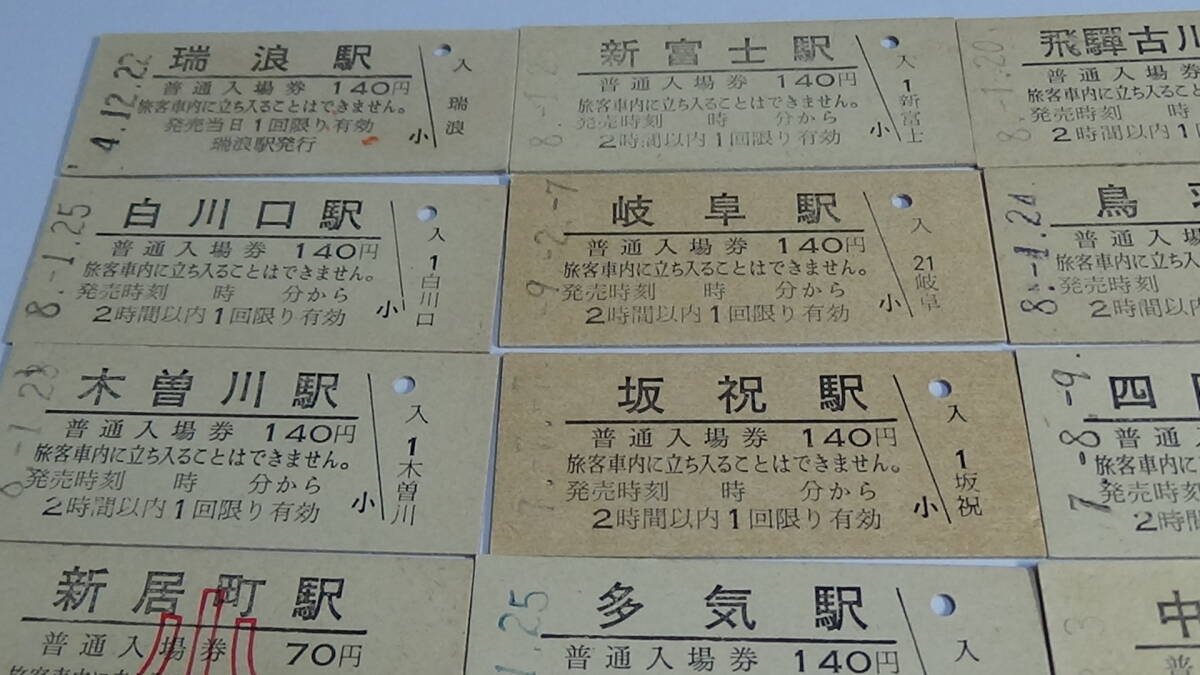 瑞浪駅
普通入場券 140円
旅客車内に立ち入ることはできません。
発売当日1回限り有効
瑞浪駅発行
4.12.22
入
瑞浪
小
新富士駅
普通入場券 140円
旅客車内に立ち入ることはできません。
発売時刻 時 分から
2時間以内1回限り有効
入
1
新富士
小
飛驒古川
普通入場券
旅客車内に立ち入ることは
発売時刻 時
2時間以内1回
8.-1.20
白川口駅
普通入場券 140円
旅客車内に立ち入ることはできません。
発売時刻 時 分から
2時間以内1回限り有効
8.-1.25
入
1
白川口
小
岐阜駅
普通入場券 140円
旅客車内に立ち入ることはできません。
発売時刻 時 分から
2時間以内1回限り有効
-9.-2.-7
入
21
岐阜
小
鳥
普通入場
旅客車内に立ち入
発売時刻
2時間以内
8.-1.24
木曽川駅
普通入場券 140円
旅客車内に立ち入ることはできません。
発売時刻 時 分から
2時間以内1回限り有効
入
1
木曽川
小
坂祝駅
普通入場券 140円
旅客車内に立ち入ることはできません。
発売時刻 時 分から
2時間以内1回限り有効
入
1
坂祝
小
四
普通
旅客車内に
発売時刻
2時間
7.-8.-9
新居町駅
普通入場券 70円
多気駅
普通入場券 140円
1.25
入
中
普